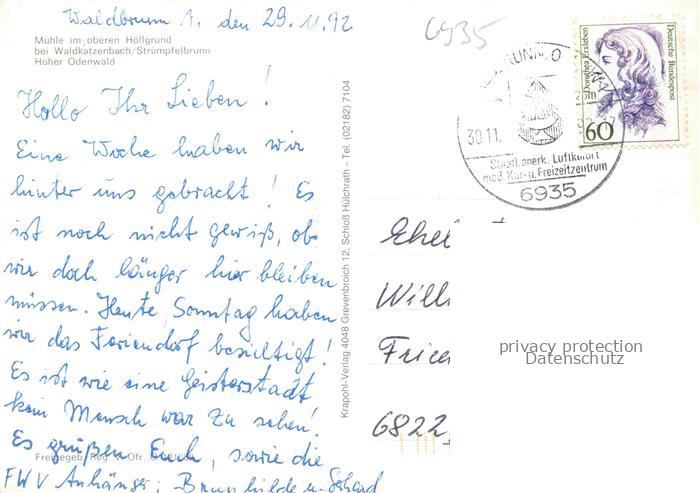 Waldbrunn 1. den 29.11.92
6935
Mühle im oberen Höllgrund
bei Waldkatzenbach/Strümpfelbrunn
Hoher Odenwald
Hallo Ihr Lieben!
Eine Woche haben wir
hinter uns gebracht! Es
ist noch nicht gewiß, ob
wir doch länger hier bleiben
müssen. Heute Sonntag haben
wir das Feriendorf besichtigt!
Es ist wie eine Geisterstadt
kein Mensch war zu sehen!
Es grüßen Euch, sowie die
FWV Anhänger: Brunhilde u. Gerhard
Freigegeb. Reg. v. Ofr.
Krapohl-Verlag 4048 Grevenbroich 12, Schloß Hülchrath - Tel. (02182) 7104
30.11.
Staatl. anerk. Luftkurort
med. Kur- u. Freizeitzentrum
6935
Dorothea Erxleben
Deutsche Bundespost
60
Ehel
Will
Fried
6822
privacy protection
Datenschutz